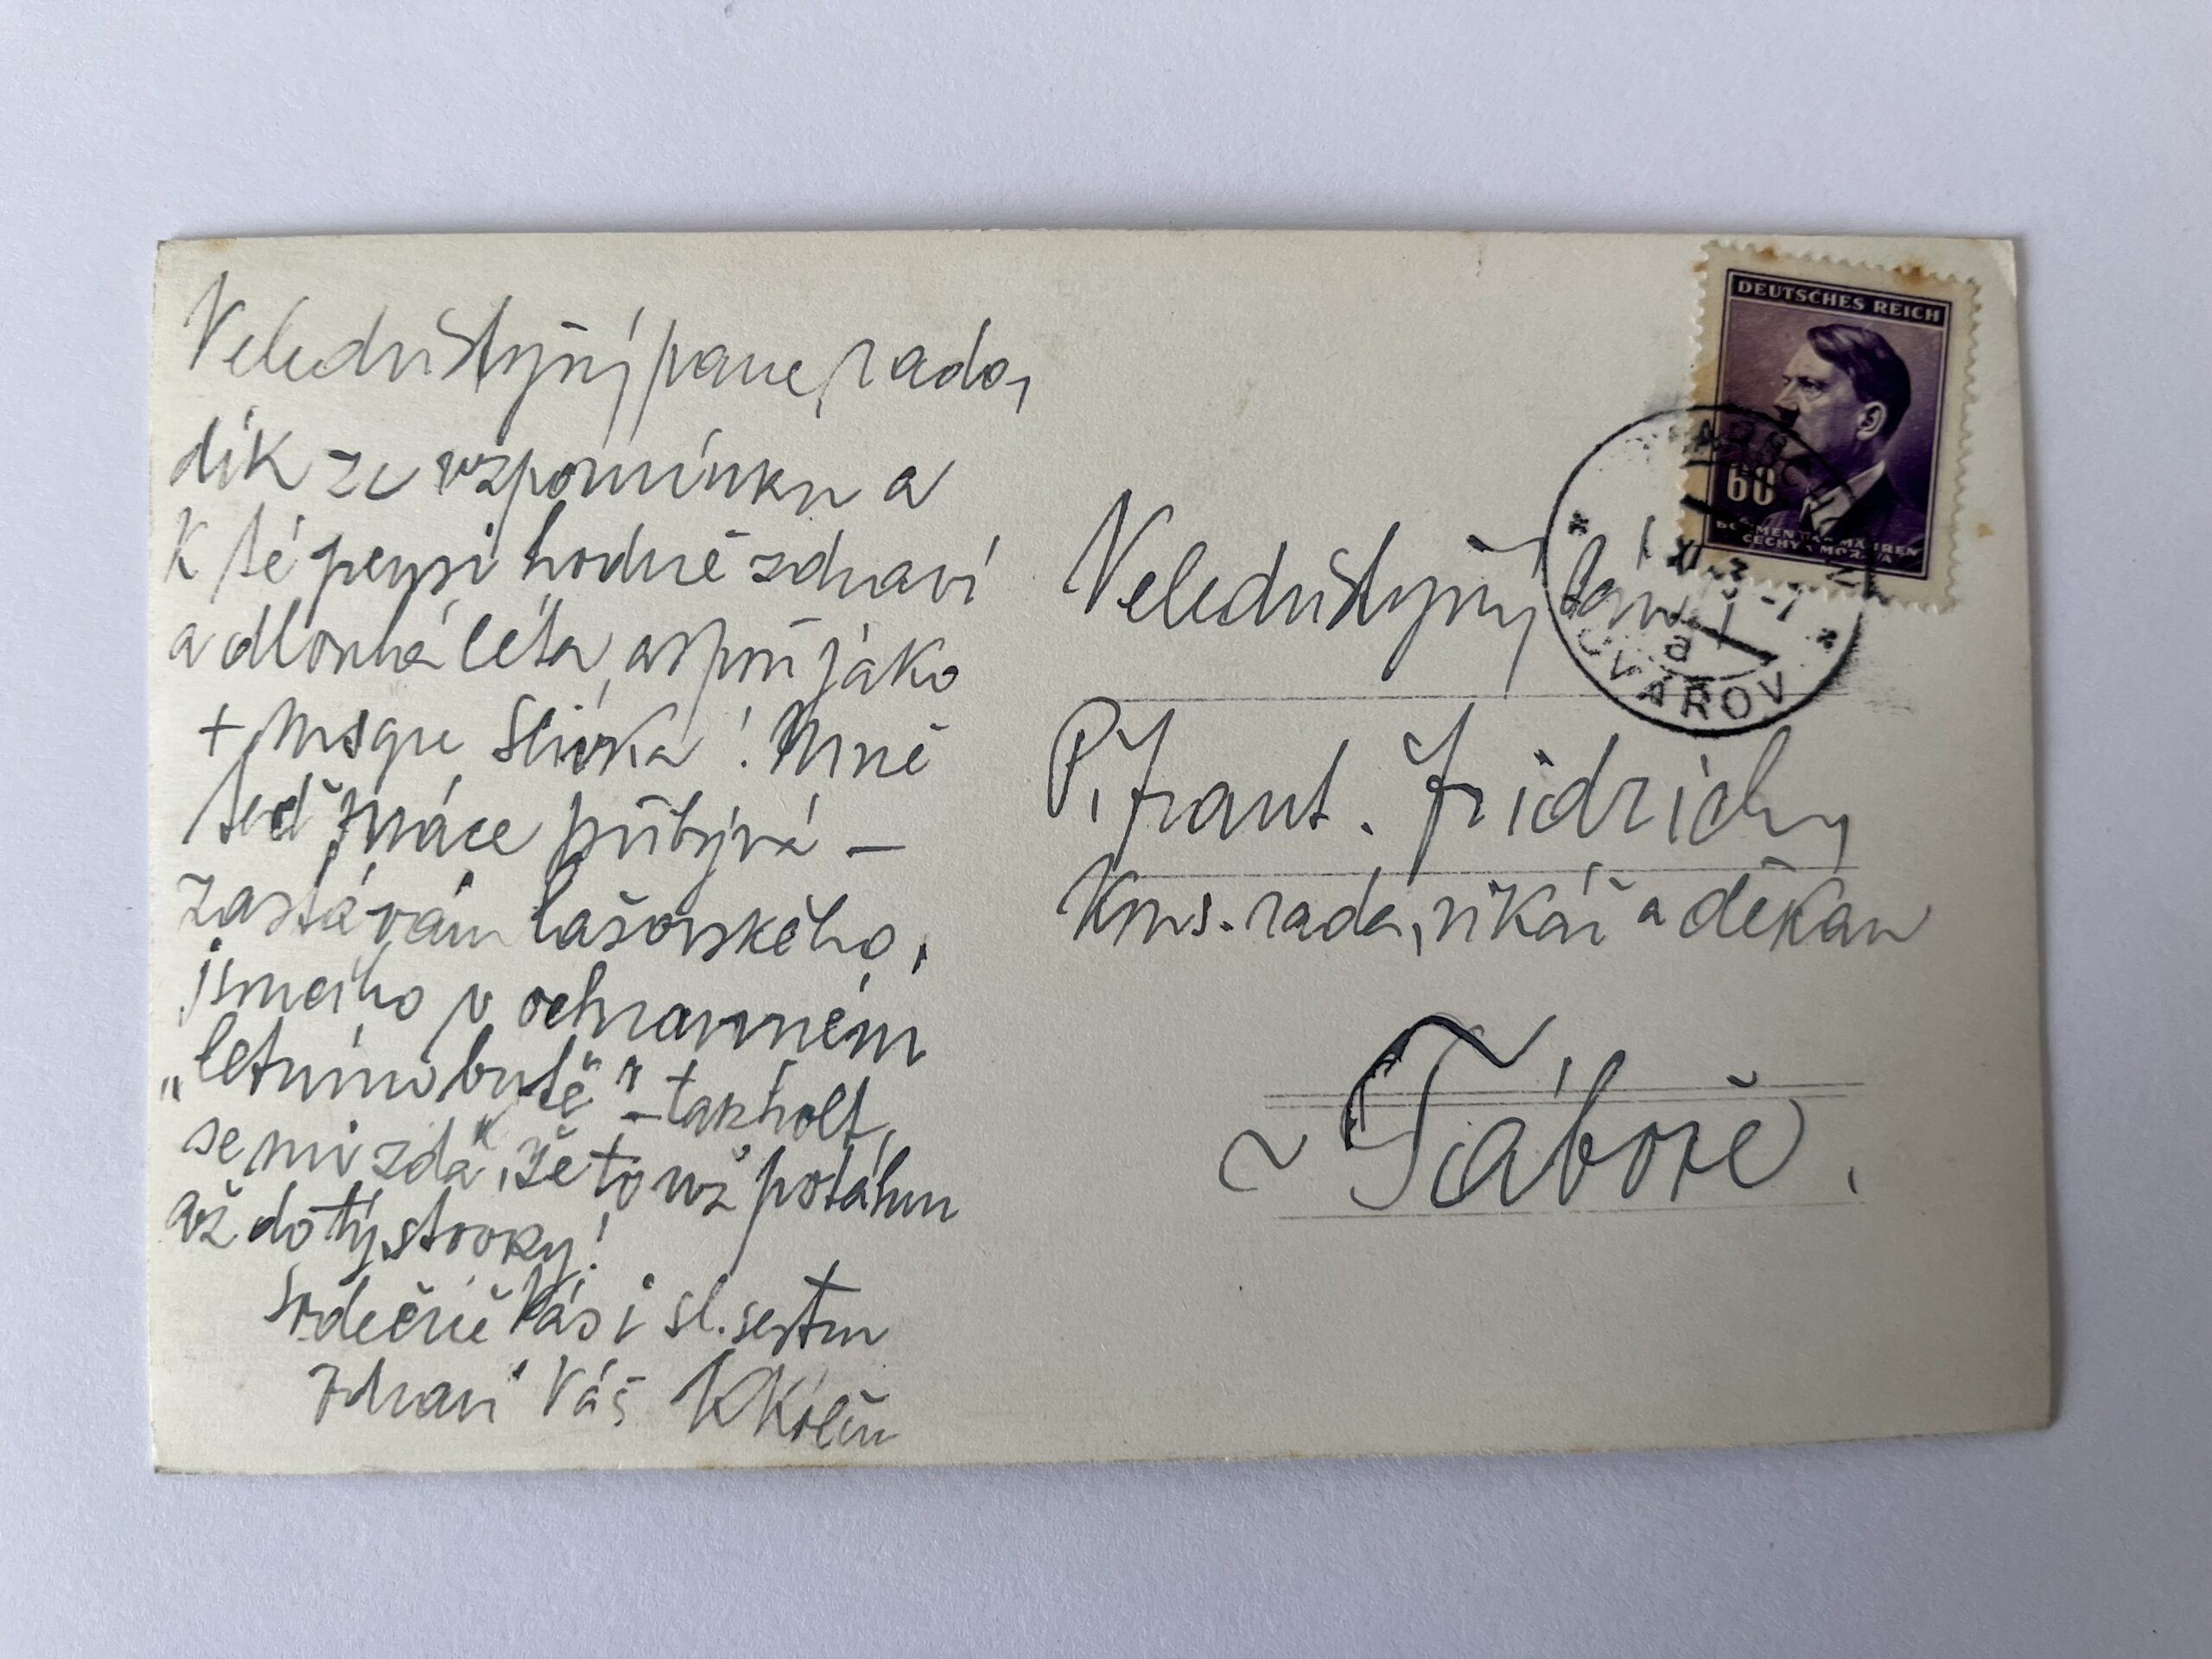 Veledůstojný pane rado,
dík za vzpomínku a
K té pensi hodně zdraví
a dlouhá léta, aspoň jako
+ Msgre Slivka! Mně
teď práce přibývá –
zastávám lašovského,
jsmeiho v ochranném
"letnímobytě" – takholt
se mi zdá, že to už potáhnu
až do tý stovky!
Srdečně Vás i sl. sestru
zdraví Váš KKolču
DEUTSCHES REICH
60
BÖHMEN UND MÄHREN
ČECHY A MORAVA
a
ÚVAROV
Veledůstojný pán
P. Frant. Fridrich,
Kons. rada, vikář a děkan
v Táboře.